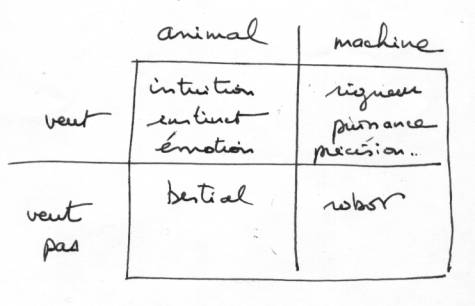 animal machine
intuition rigueur
veut instinct puissance
émotion précision..
bestial robot
veut
pas